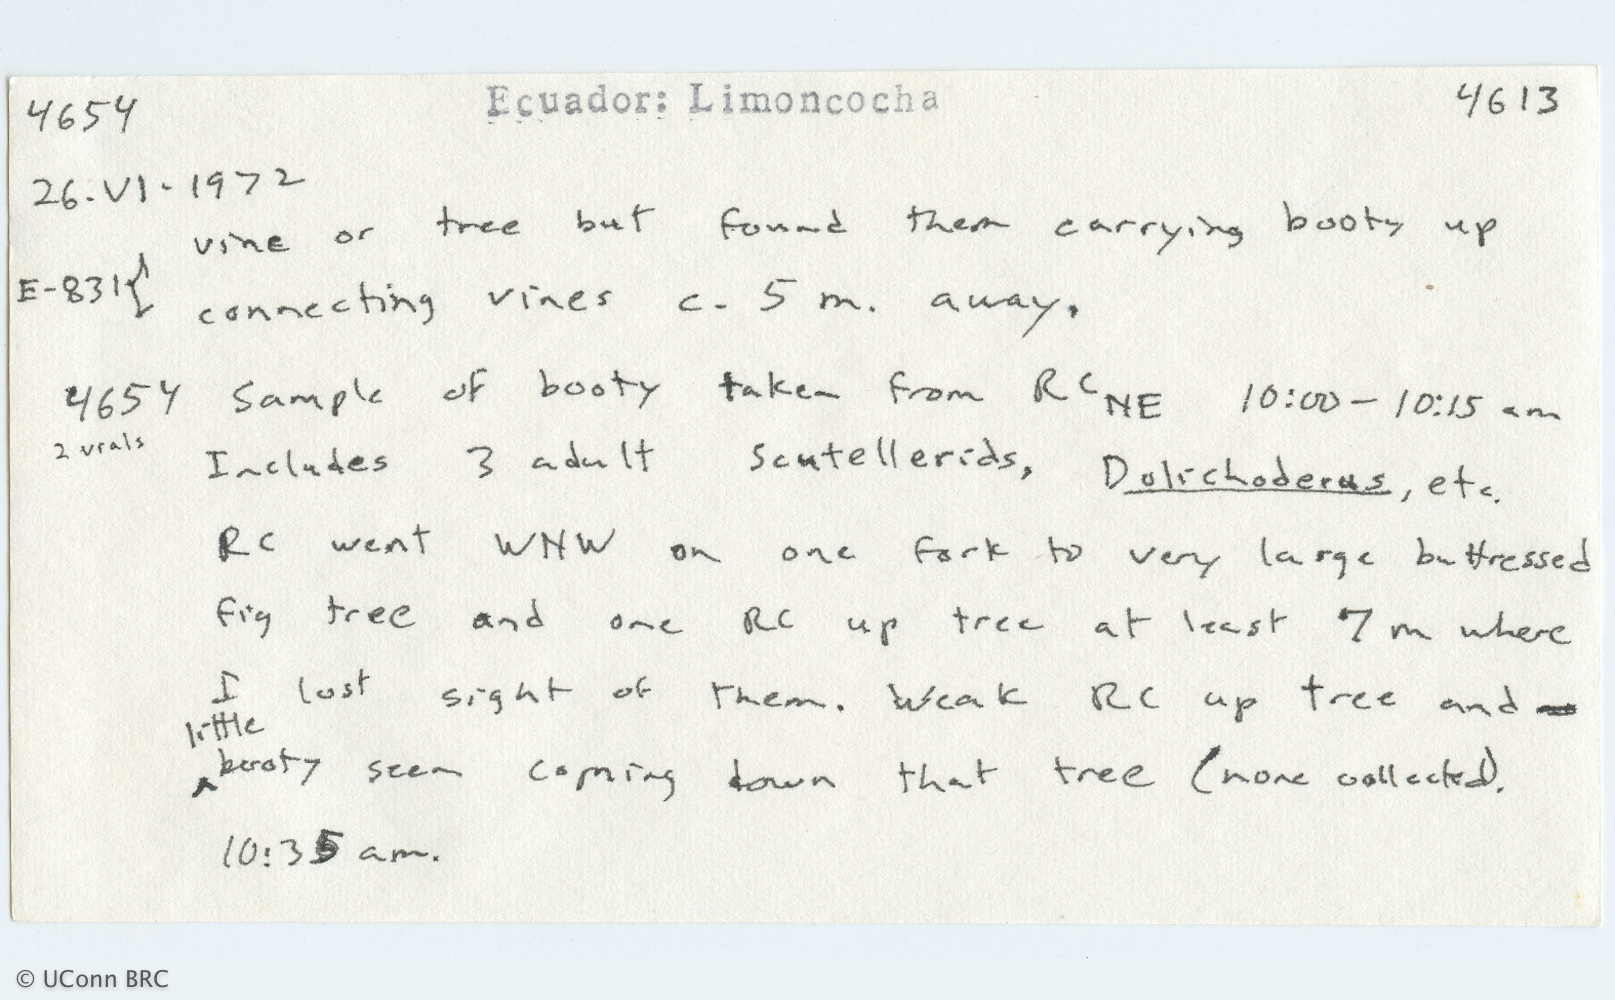 4654 Ecuador: Limoncocha 4613
26.VI.1972
vine or tree but found them carrying booty up
E-831{ connecting vines c. 5 m. away.
4654 Sample of booty taken from RC NE 10:00 - 10:15 am
2 vials Includes 3 adult scutellerids, Dolichoderus, etc.
RC went WNW on one fork to very large buttressed
fig tree and one RC up tree at least 7 m where
I lost sight of them. Weak RC up tree and
little
^booty seen coming down that tree (none collected).
10:35 am.
© UConn BRC